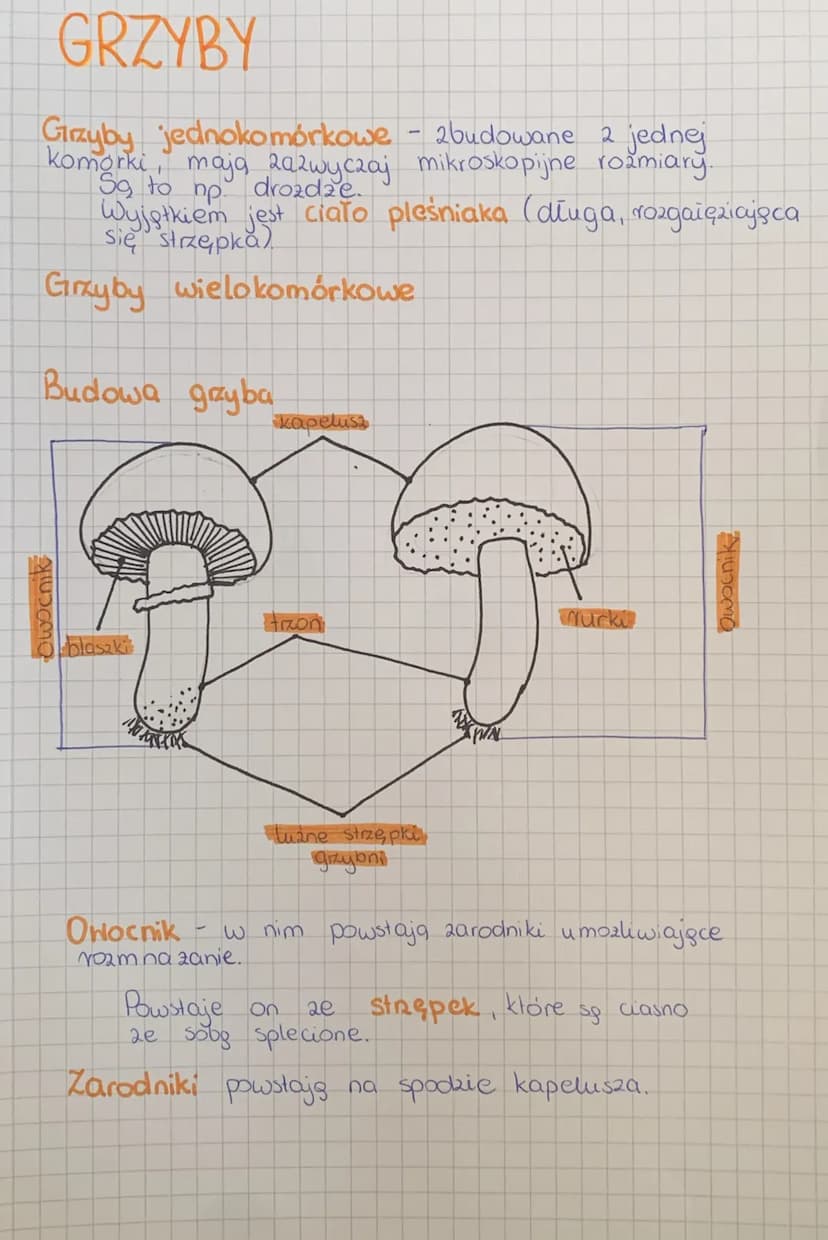 GRZYBY
Grzyby jednokomórkowe - zbudowane z jednej
komórki, mają zazwyczaj mikroskopijne rozmiary.
Są to np. drożdże.
Wyjątkiem jest ciało pleśniaka (długa, rozgałęziająca
się strzępka)
Grzyby wielokomórkowe
Budowa grzyba
kapelusz
owocnik
owocnik
blaszki
trzon
rurki
luźne strzępki
grzybni
Owocnik - w nim powstają zarodniki umożliwiające
rozmnażanie.
Powstaje on ze strzępek, które są ciasno
ze sobą splecione.
Zarodniki powstają na spodzie kapelusza.